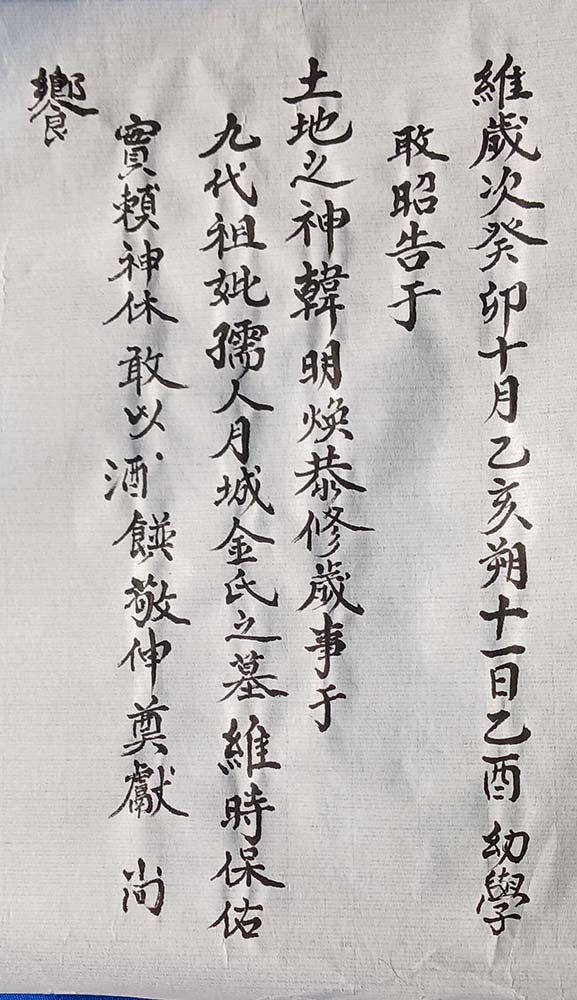 維歲次癸卯十月乙亥朔十一日乙酉 幼學
敢昭告于
土地之神韓明煥恭修歲事于
九代祖妣孺人月城金氏之墓維時保佑
實賴神休敢以酒饌敬伸奠獻 尙
饗